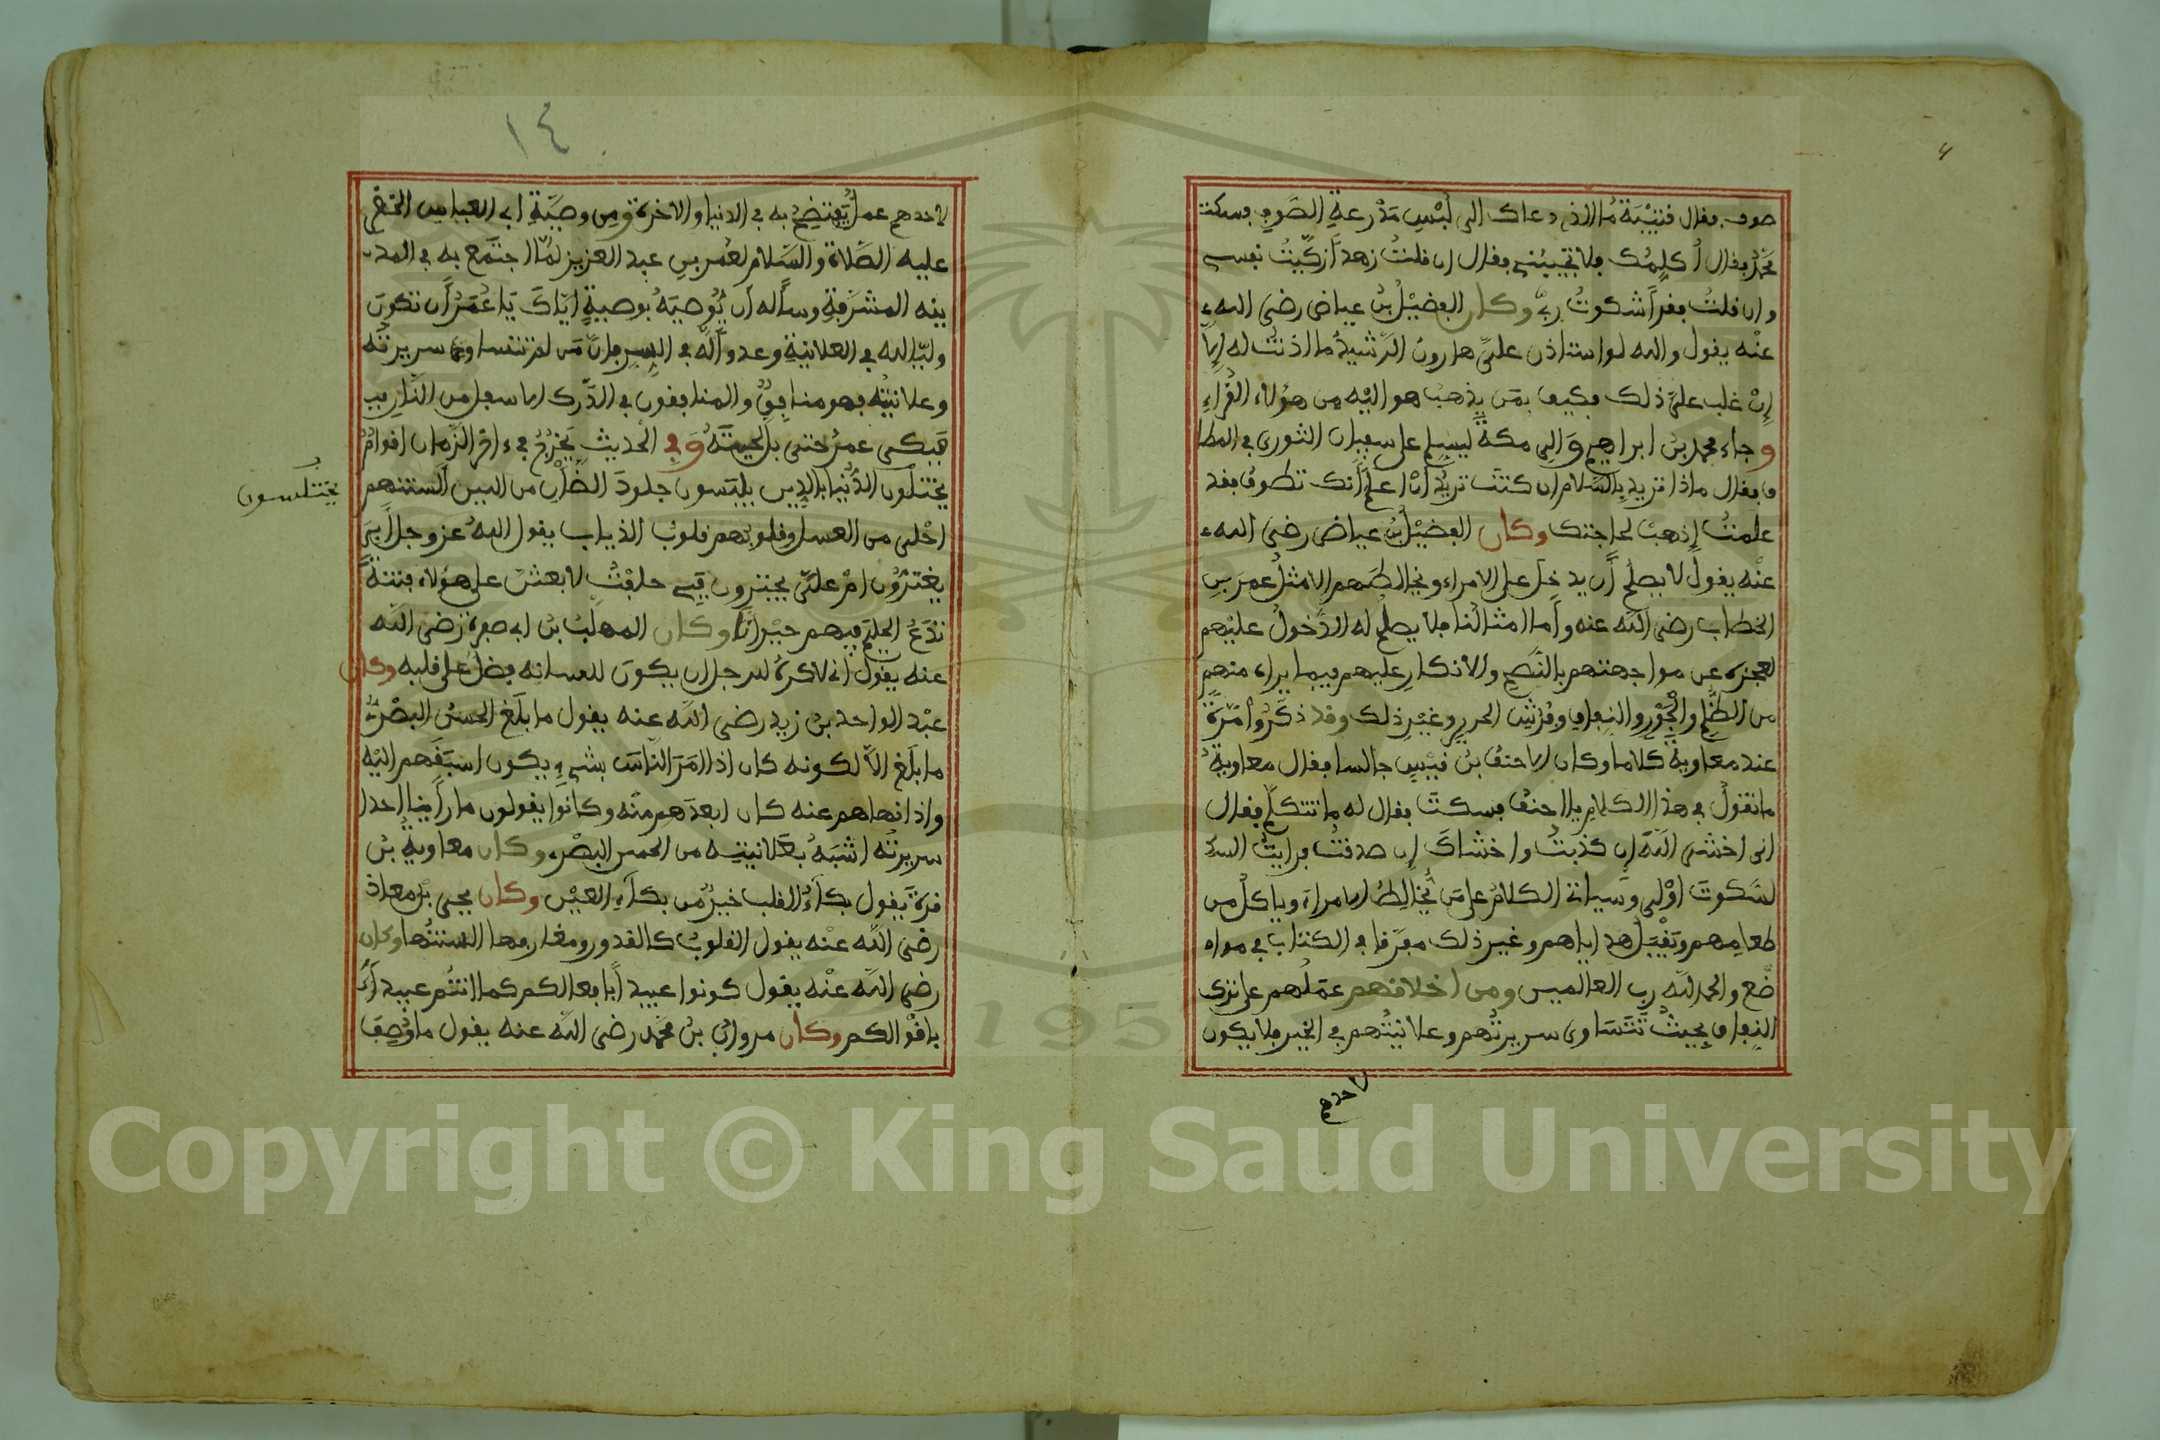 صوف فقال قتيبة ما الذي دعاك الى لبس مدرعة الصوف فسكت
محمد فقال اكلمك فلا تجيبني فقال ان قلت زهدا زكيت نفسي
وان قلت فقرا شكوت ربي وكان الفضيل بن عياض رضي الله
عنه يقول والله لو استاذن علي هارون الرشيد ما اذنت له الا
ان غلب على ذلك فكيف بمن يذهب هو اليه من هؤلاء القراء
وجاء محمد بن ابراهيم والي مكة ليسلم على سفيان الثوري في المطا
ف فقال ماذا تريد بالسلام ان كنت تريد ان اعلم انك تطوف فقد
علمت اذهب لحاجتك وكان الفضيل بن عياض رضي الله
عنه يقول لا يصلح ان يدخل على الامراء ويخالطهم الا مثل عمر بن
الخطاب رضي الله عنه واما امثالنا فلا يصلح له الدخول عليهم
لعجزه عن مواجهتهم بالنصح والانكار عليهم فيما يراه منهم
من الظلم والجور والنفاق وفرش الحرير وغير ذلك وقد ذكروا مرة
عند معاوية كلاما وكان الاحنف بن قيس جالسا فقال معاوية
ما تقول في هذا الكلام يا احنف فسكت فقال له ما تتكلم فقال
اني اخشى الله ان كذبت واخشاك ان صدقت فرايت الس
لسكوت اولى وسياتي الكلام على من يخالط الامراء وياكل من
طعامهم وتقبل هداياهم وغير ذلك مفرقا في الكتاب في مواه
ضع والحمد لله رب العالمين ومن اخلاقهم عملهم على ترك
النفاق بحيث تتساوى سريرتهم وعلانيتهم في الخير فلا يكون
لاحدهم
١٤
لاحدهم عمل يفتضح به في الدنيا والاخرة ومن وصية ابي العباس الخضر
عليه الصلاة والسلام لعمر بن عبد العزيز لما اجتمع به في المد
ينة المشرفة وساله ان يوصيه بوصية اياك يا عمر ان تكون
وليا لله في العلانية وعدوا له في السر فان من لم تتساوى سريرته
وعلانيته فهو منافق والمنافقون في الدرك الاسفل من النار
فبكى عمر حتى بل لحيته وفي الحديث يخرج في ءاخر الزمان اقوام
يختلون الدنيا بالدين يلبسون جلود الضان من اللين السنتهم
يختلسون
احلى من العسل وقلوبهم قلوب الذياب يقول الله عز وجل ابي
يغترون ام علي يجترون فبي حلفت لابعثن على هؤلاء فتنة
تدع الحليم فيهم حيرانا وكان المهلب بن ابي صفرة رضي الله
عنه يقول اني لاكره للرجل ان يكون للسانه فضل على قلبه وكان
عبد الواحد بن زيد رضي الله عنه يقول ما بلغ الحسن البصري
ما بلغ الا لكونه كان اذا امر الناس بشيء يكون اسبقهم اليه
واذا نهاهم عنه كان ابعدهم منه وكانوا يقولون ما راينا احدا
سريرته اشبه بعلانيته من الحسن البصري وكان معاوية بن
قرة يقول بكاء القلب خير من بكاء العين وكان يحيى بن معاذ
رضي الله عنه يقول القلوب كالقدور ومغارفها السنتها وكان
رضي الله عنه يقول كونوا عبيدا بافعالكم كما انتم عبيد
باقوالكم وكان مروان بن محمد رضي الله عنه يقول ما وصف
Copyright © King Saud University